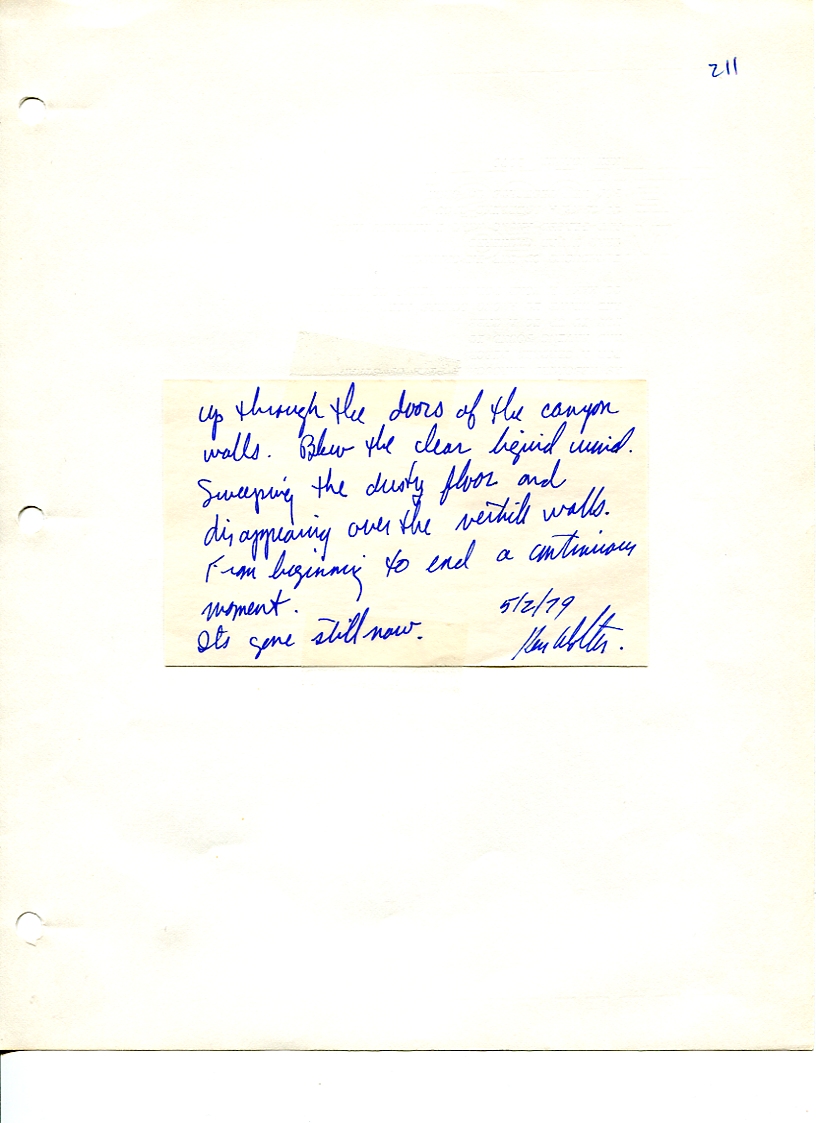 211
up through the doors of the canyon
walls. Blew the clear liquid wind.
Sweeping the dusty floor and
disappearing over the walls.
From beginning to end a continuous
moment. 5/2/79
Its gone still now. Ken Wolter.